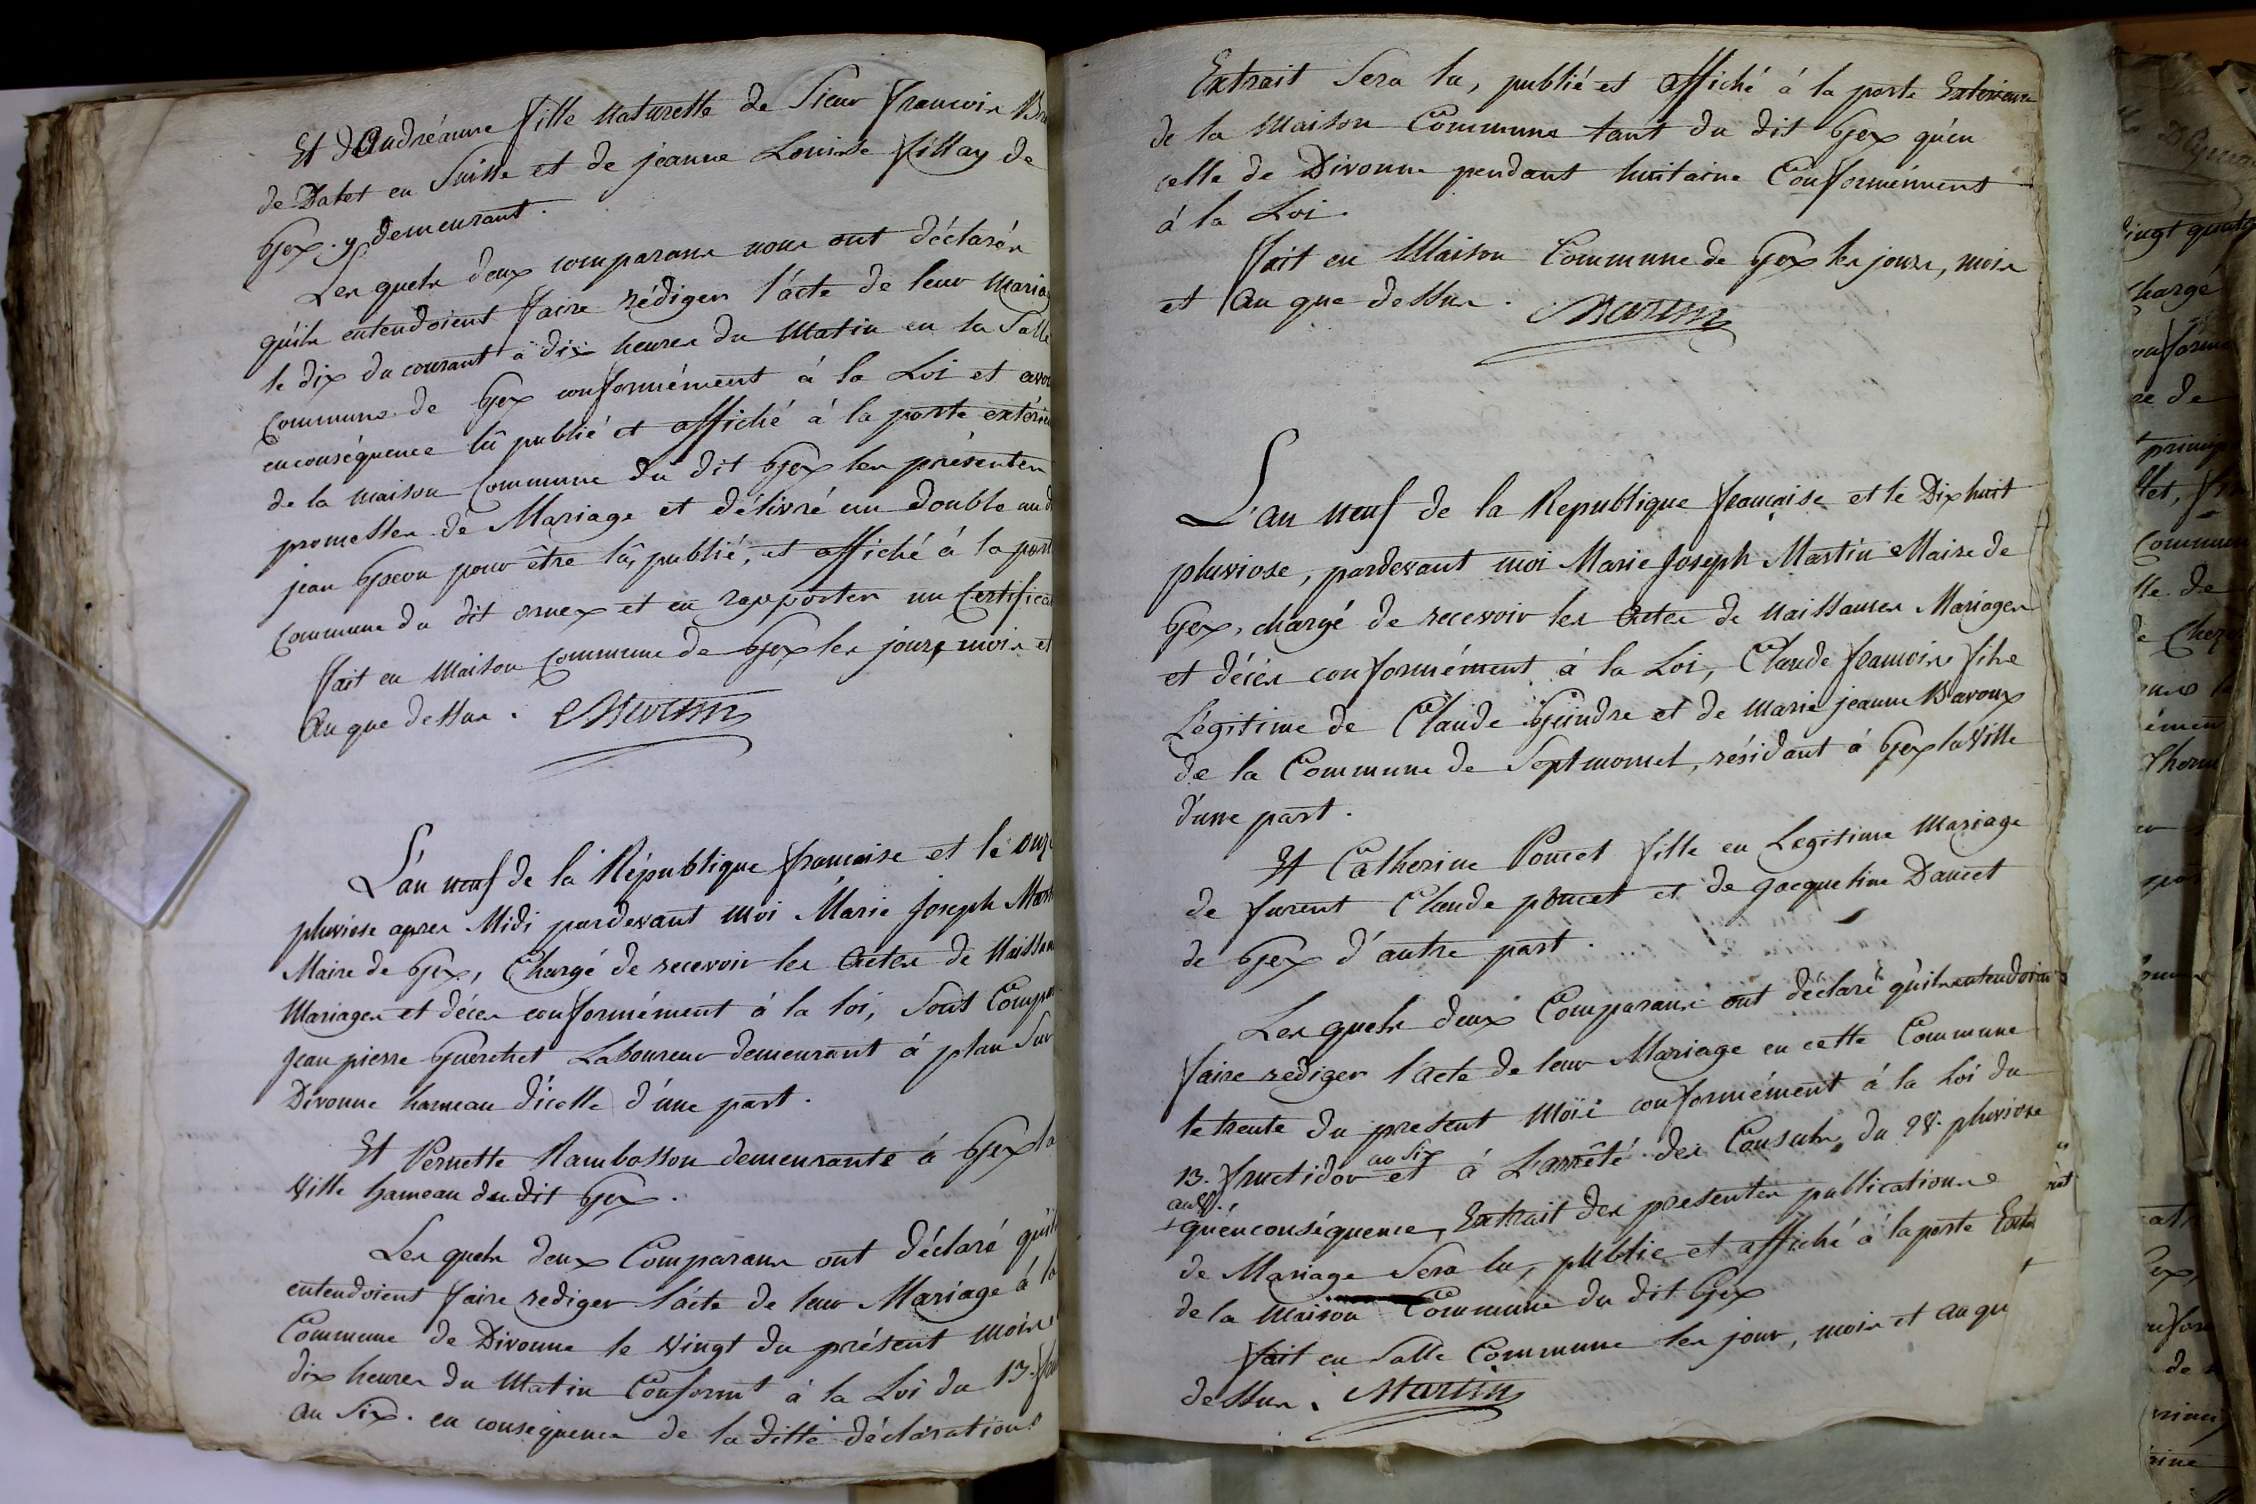 Et d'Andréanne fille Naturelle de Sieur francois
de en Suisse et de jeanne Louise fillay de
Gex. y demeurant.
Les quels deux comparans nous ont déclarés
qu'ils entendoient faire rédiger l'acte de leur Mariag
le dix du courant à dix heures du Matin en la Salle
Commune de Gex conformément à la Loi et avon
en conséquence lû publié et affiché à la porte extérieu
de la Maison Commune du dit Gex les présentes
promesses de Mariage et délivré un double au d
jean pour être lû, publié, et affiché à la port
Commune du dit ornex et en rapporter un Certificat
fait en Maison Commune de Gex les jours, mois et
An que dessus. Martin
L'an neuf de la République francaise et le onz
pluviose apres Midi pardevant Moi Marie Joseph Mart
Maire de Gex, Chargé de recevoir les Actes de Naissan
Mariages et décès conformément à la loi, Sont Compar
Jean pierre Guerchet Laboureur demeurant à plan Sur
Divonne hameau d'icelle d'une part.
Et Pernette Rambosson demeurante à Gex la
Ville hameau du dit Gex.
Les quels deux Comparans ont déclaré qu'il
entendoient faire rediger l'acte de leur Mariage à la
Commune de Divonne le Vingt du présent Mois
dix heures du Matin Conformt à la Loi du 13. fru
an Six. en conséquence de la ditte déclaration
Extrait Sera lu, publié et affiché à la porte Exterieure
de la Maison Commune tant du dit Gex qu'en
celle de Divonne pendant huitaine Conformément
à la Loi.
fait en Maison Commune de Gex les jours, mois
et An que dessus. Martin
L'an Neuf de la Republique française et le Dix huit
pluviose, pardevant moi Marie Joseph Martin Maire de
Gex, chargé de recevoir les Actes de Naissances Mariages
et décès conformément à la Loi, Claude francois fils
Légitime de Claude Gindre et de Marie jeanne Bavoux
de la Commune de Septmoncel, résidant à Gex la Ville
d'une part.
Et Catherine Poncet fille en Legitime Mariage
de furent Claude poncet et de jacqueline Dancet
de Gex d'autre part.
Les quels deux Comparans ont déclaré qu'ils entendoient
faire rediger l'acte de leur Mariage en cette Commune
le trente du present Mois conformément à la Loi du
13. fructidor an Six et à L'arrêté des Consuls du 28. pluviose
an 8.
qu'en conséquence, Extrait des presentes publications
de Mariage Sera lu, publié et affiché à la porte
de la Maison Commune du dit Gex
fait en Salle Commune les jour, mois et an que
dessus. Martin